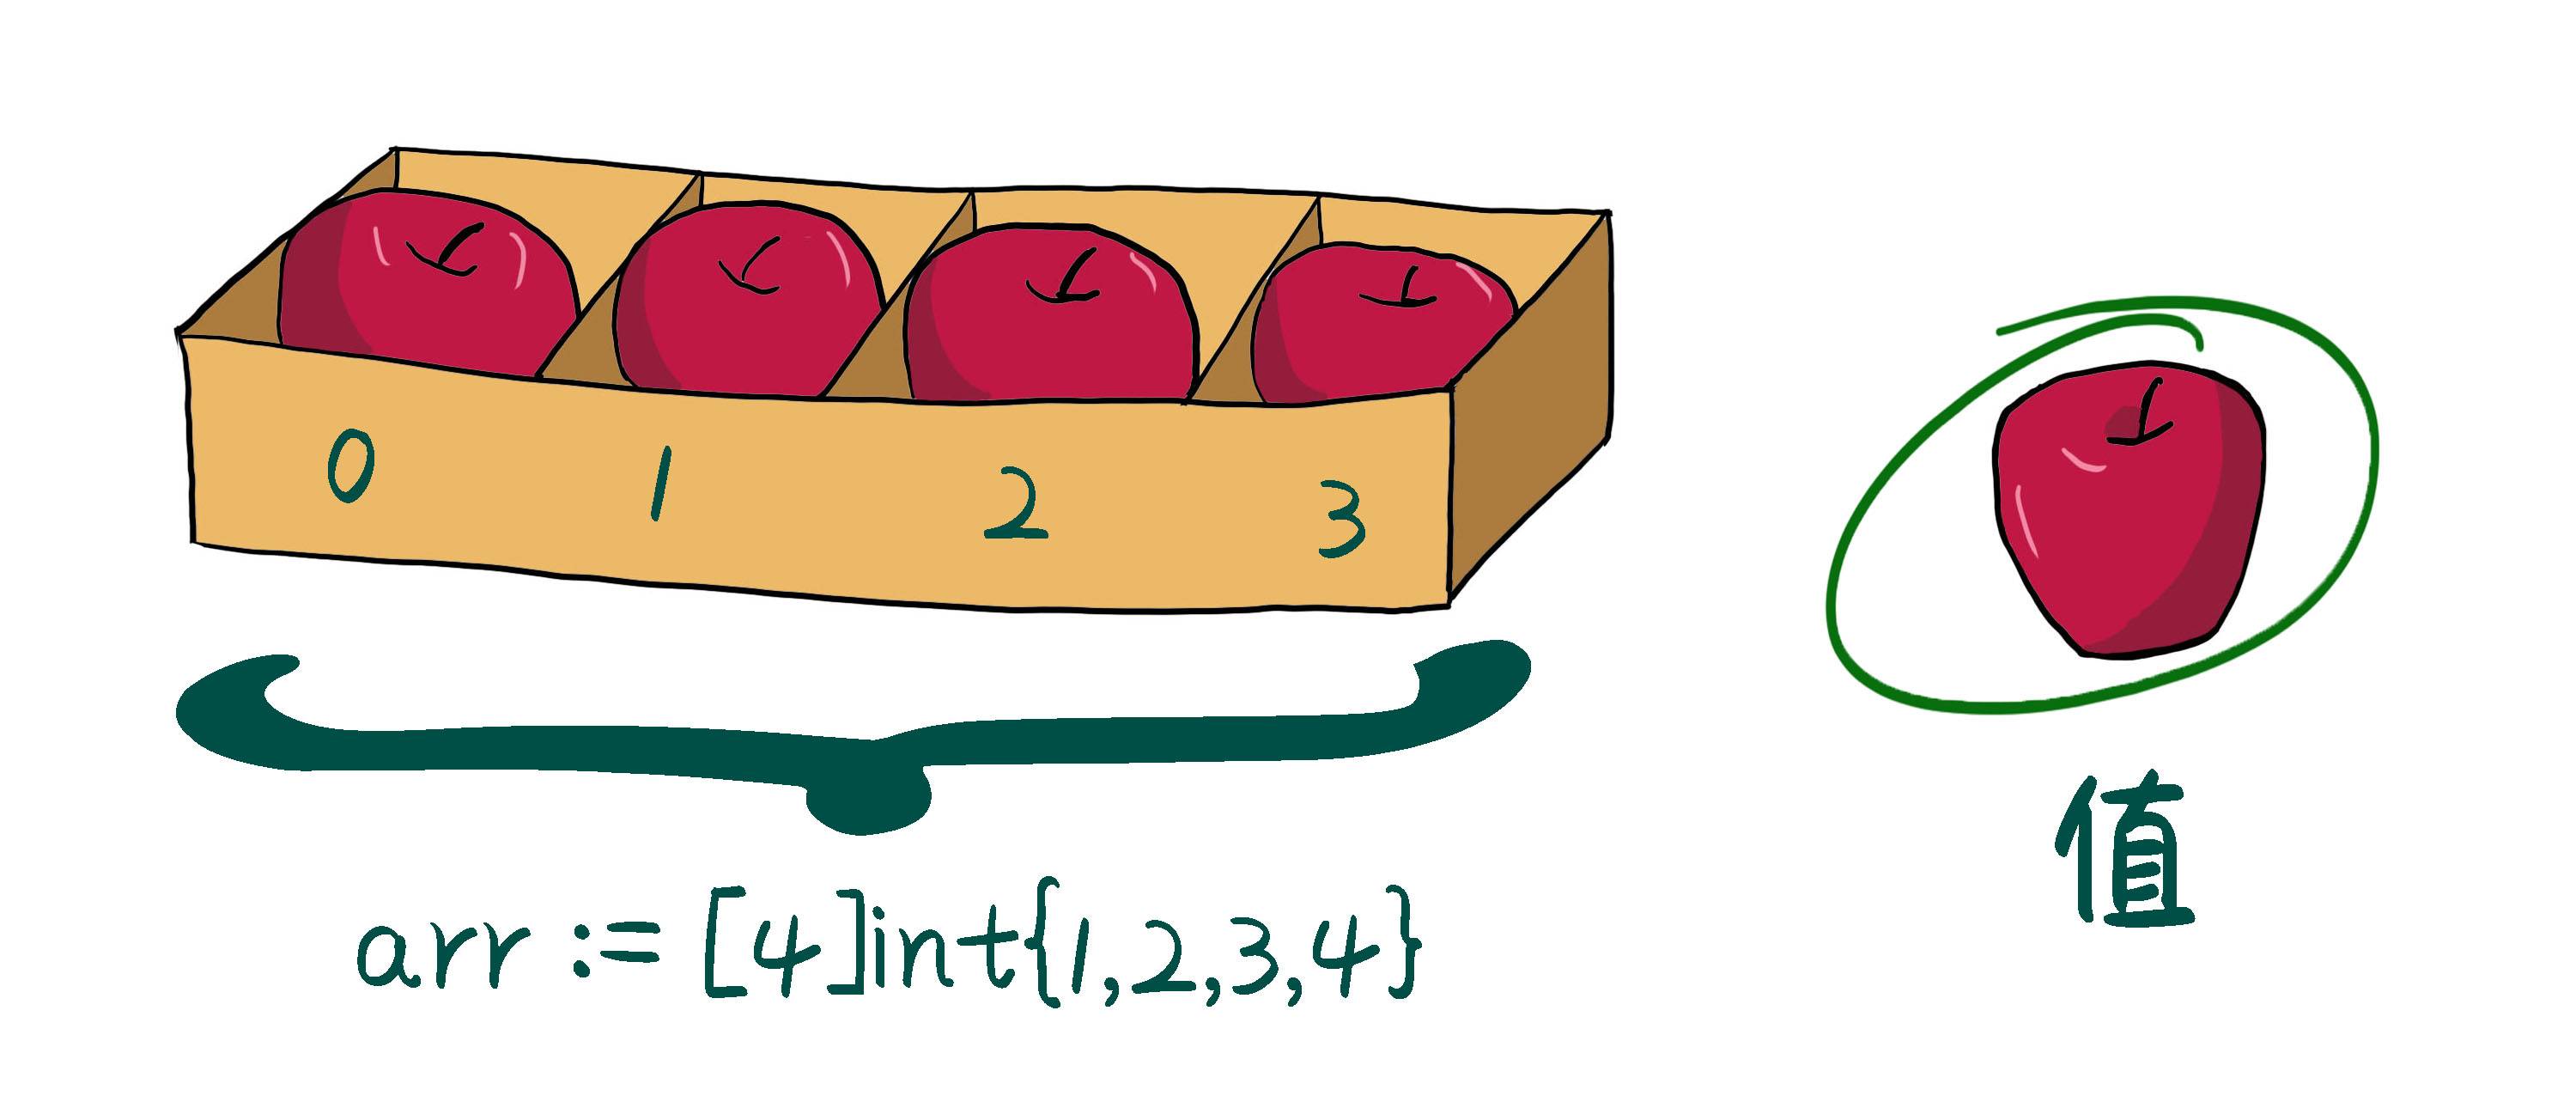 0 1 2 3
值
arr := [4]int{1,2,3,4}